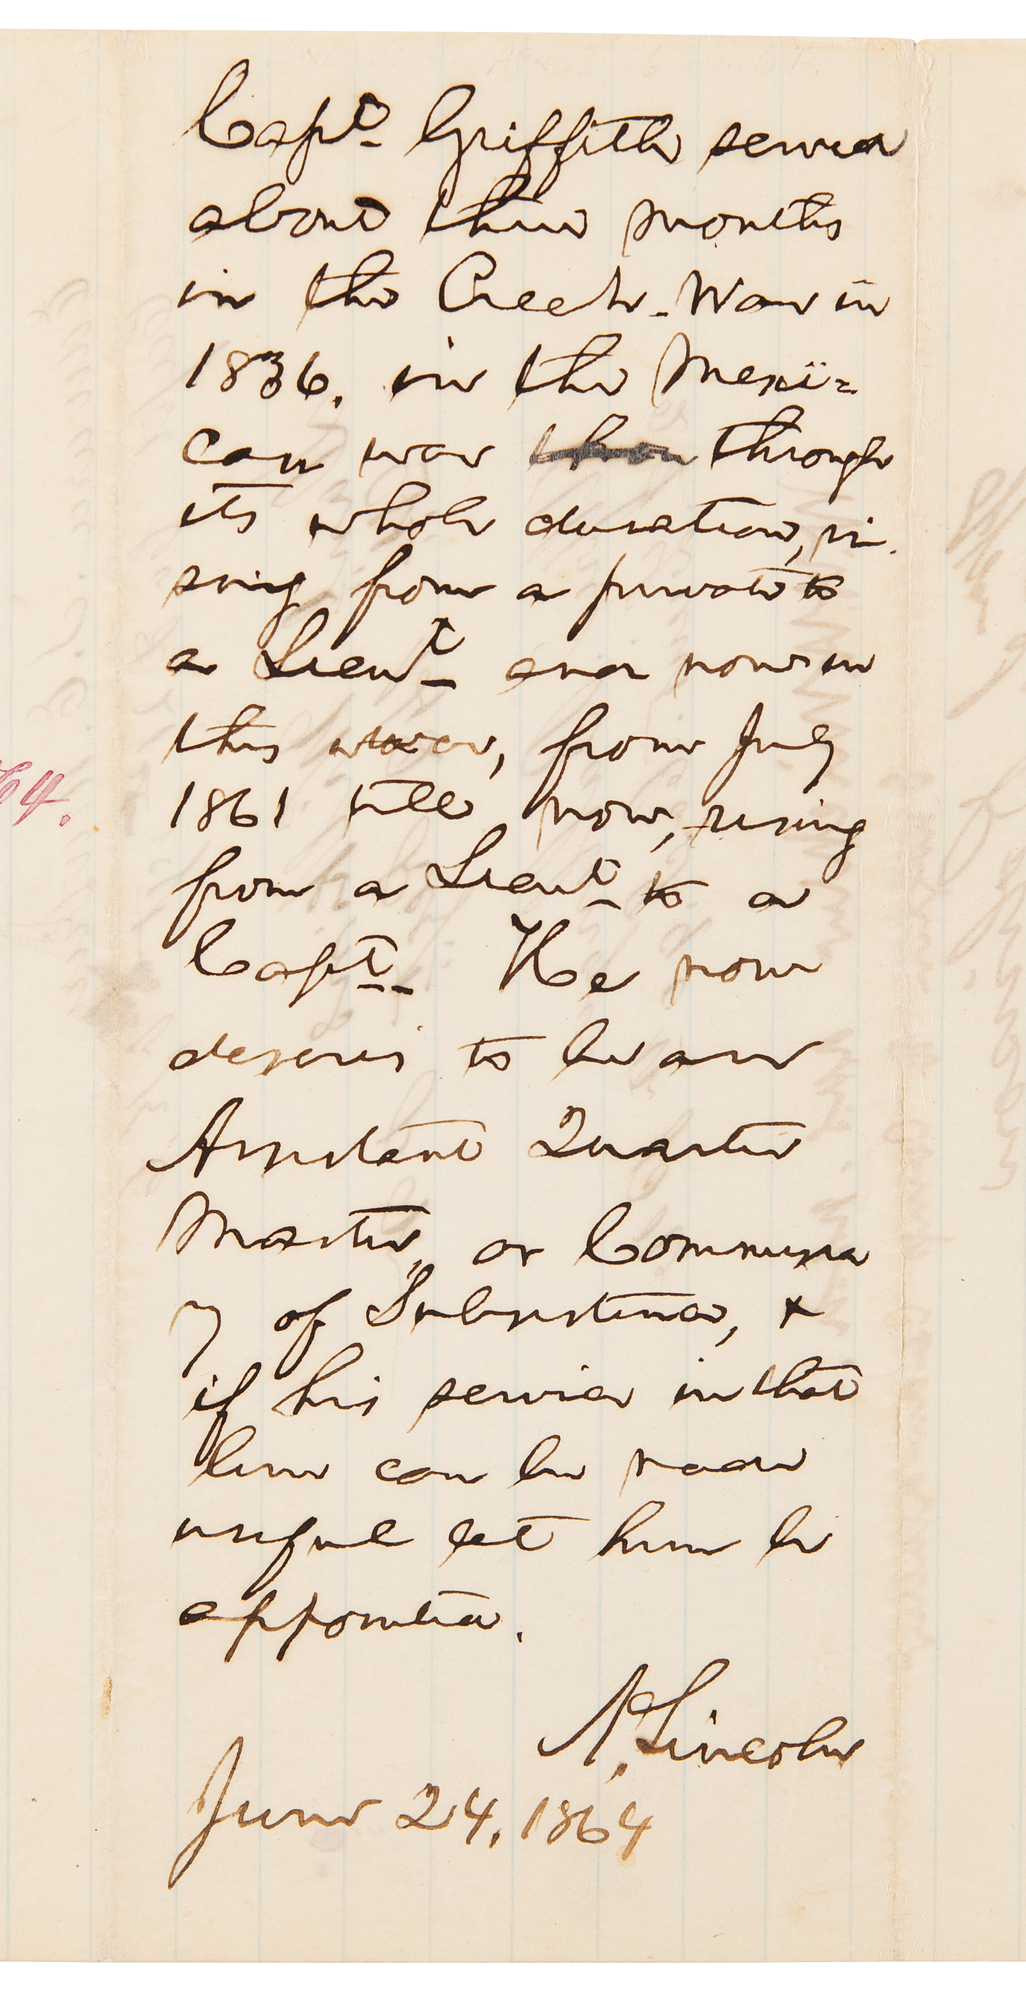 Capt. Griffith served
about three months
in the Creek-War in
1836. in the Mexi=
can war thou through
its whole duration, ri-
sing from a private to
a Lieut. and now in
this war, from July
1861 till now, rising
from a Lieut. to a
Capt. He now
desires to be an
Assistant Quarter
Master, or Commissa
ry of Subsistence, &
if his service in that
line can be made
useful let him be
appointed.
A. Lincoln
June 24, 1864
64.